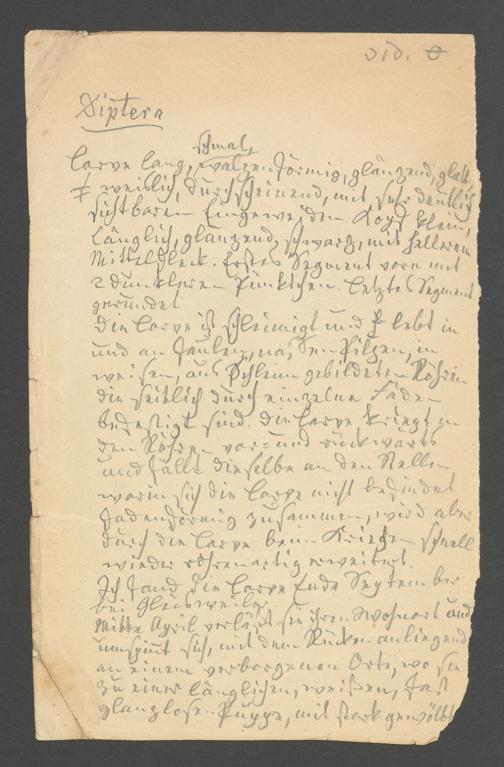 Diptera
schmal,
Larve lang, walzenförmig, glänzend, glatt
weislich, durchscheinend, mit sehr deutlich
sichtbaren Eingeweiden. Kopf klein,
länglich, glänzend, schwarz, mit hellerem
Mittelfleck. Erstes Segment vorn mit
2 dunkleren Pünktchen. Letztes Segment
gerundet.
Die Larve ist schleimigt und lebt in
und an faulen, nassen Pilzen, in
weisen, aus Schleim gebildeten Röhren
die seitlich durch einzelne Fäden
befestigt sind. Die Larve kriegt in
den Röhren vor- und rückwärts
und fällt dieselbe an den Stellen,
worin sich die Larve nicht befindet
fadenförmig zusammen, wird aber
durch die Larve beim Kriechen schnell
wieder röhrenartig erweitert.
Ich fand die Larve Ende September
bei Gleisweiler
Mitte April verläst sie ihren Wohnort und
umspint sich, mit dem Rücken anliegend
an einem verborgenen Orte, wo sie
zu einer länglichen, weißen, fast
glanzlosen Puppe, mit stark gewölbt